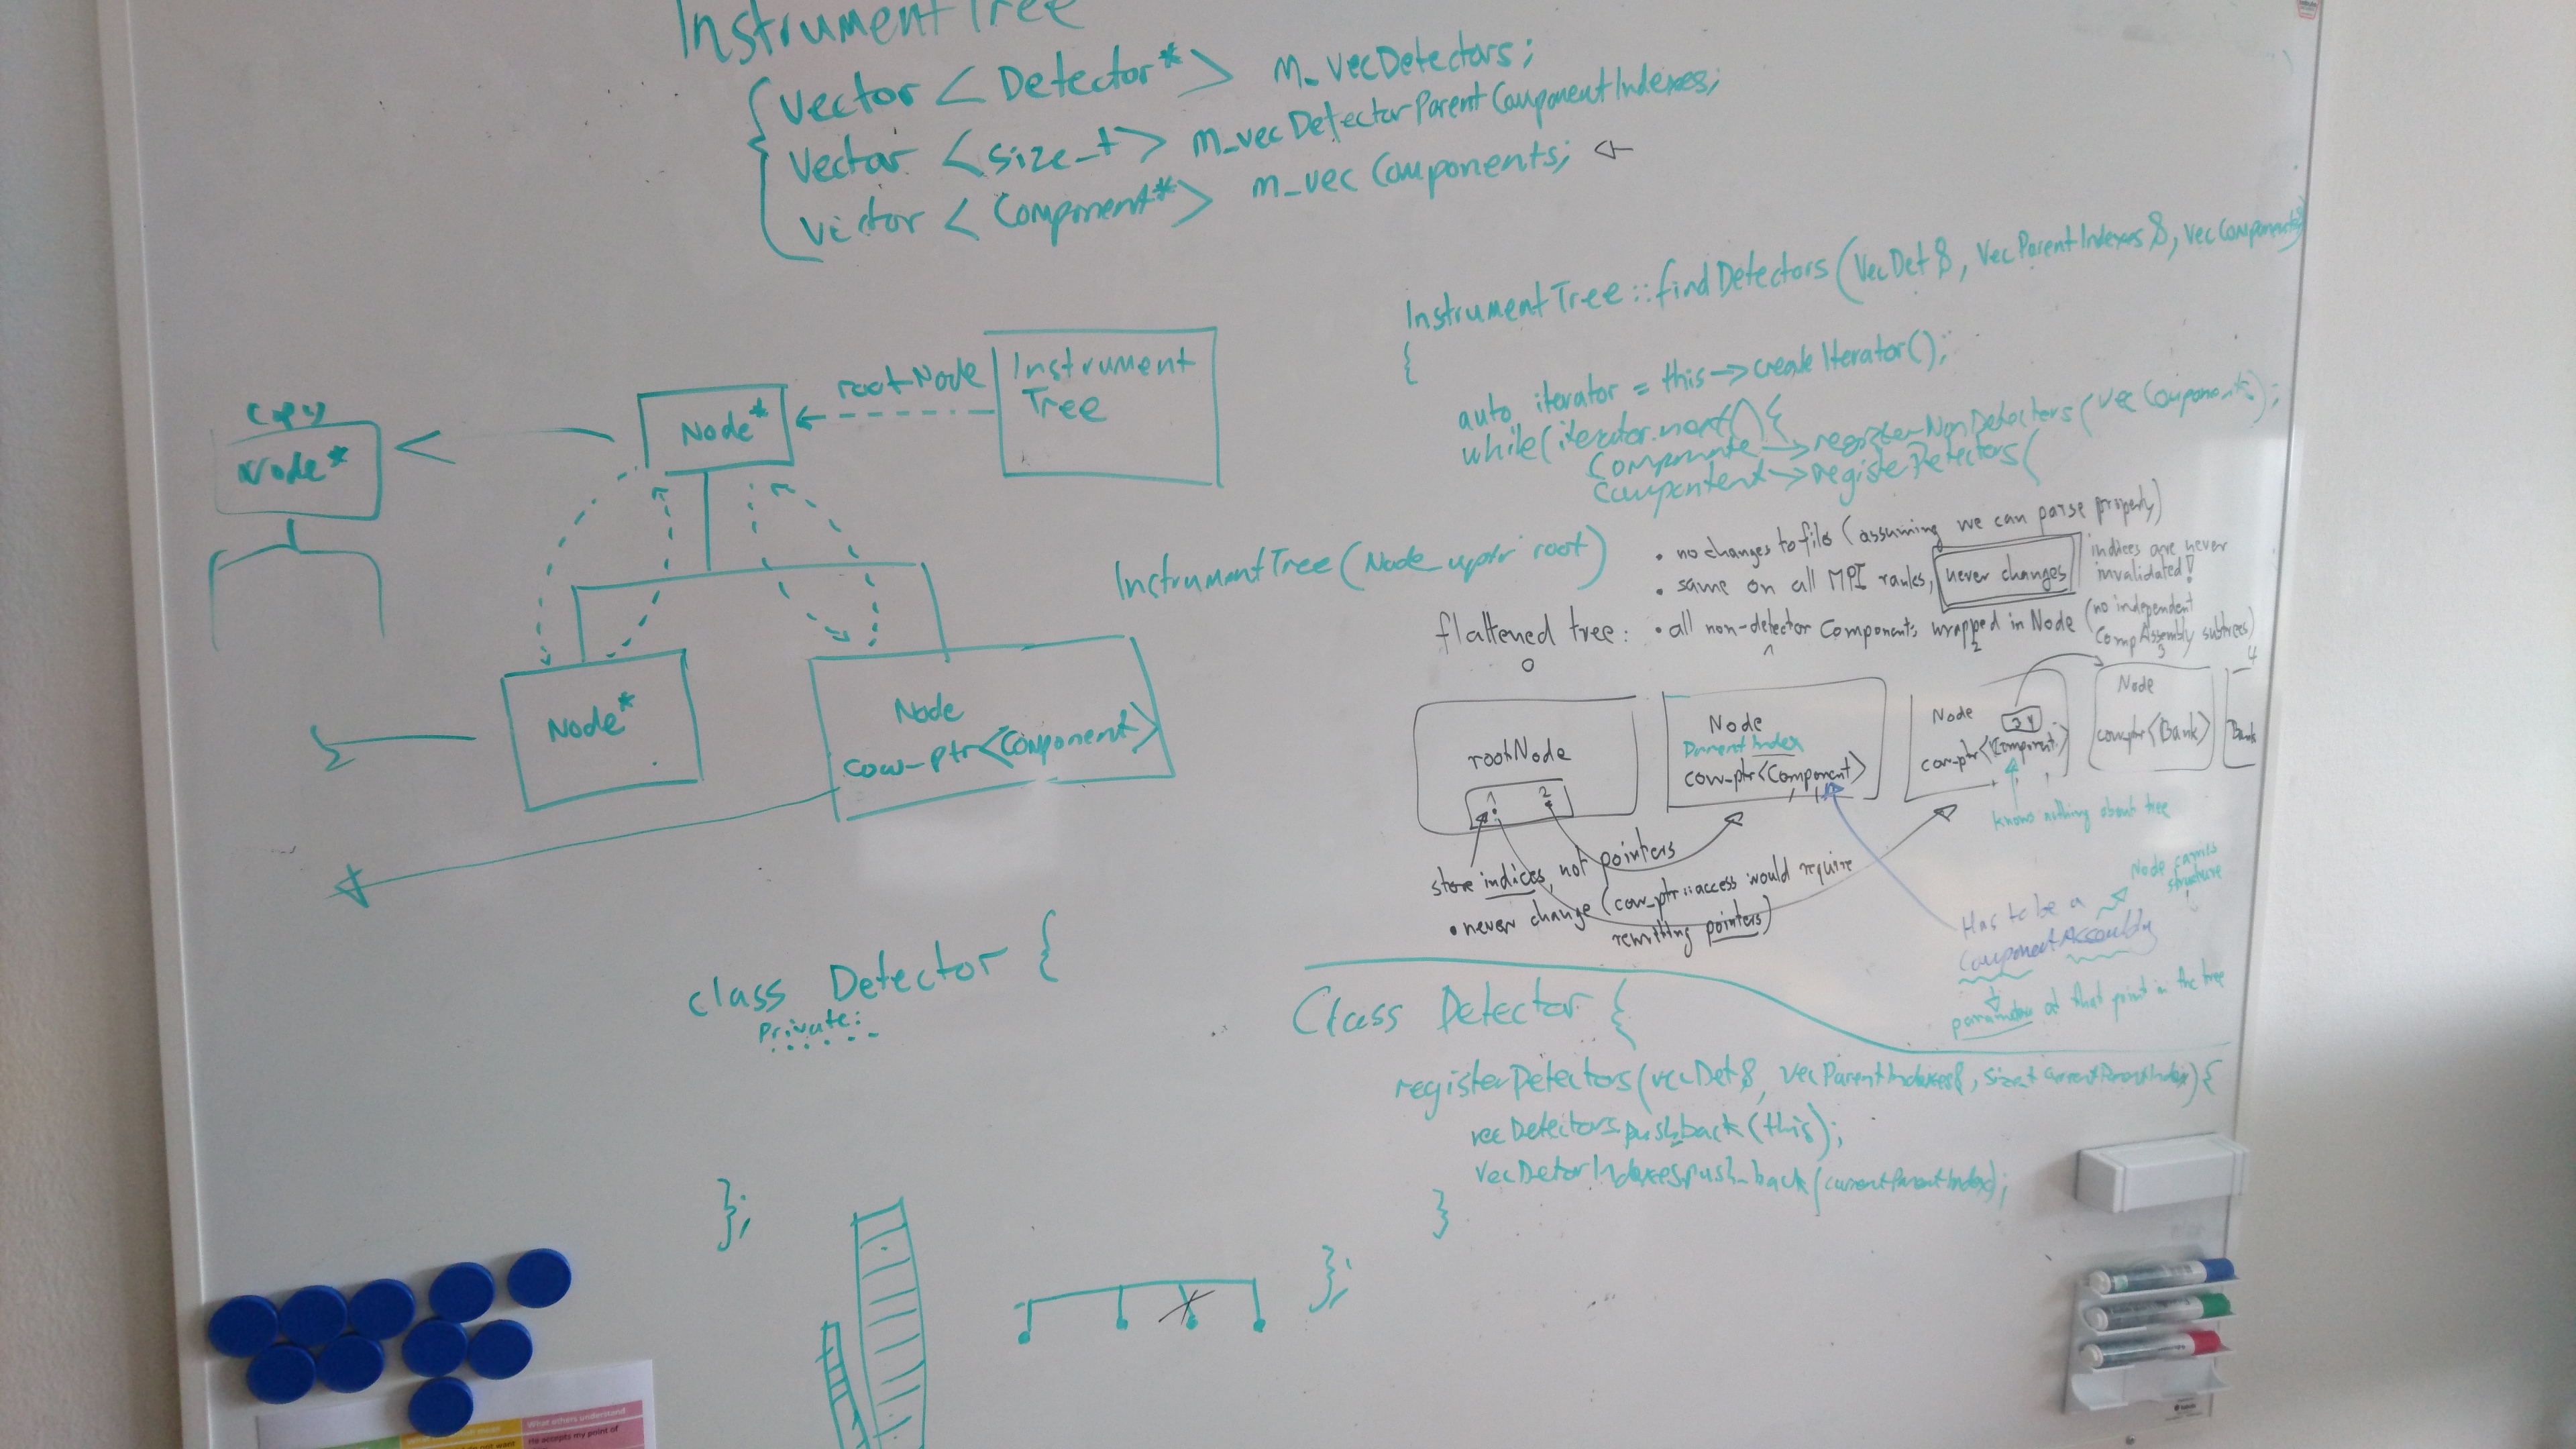 InstrumentTree
{ vector < Detector* > m_vecDetectors;
vector < size_t > m_vecDetectorParentComponentIndexes;
vector < Component* > m_vec Components; ←
InstrumentTree::findDetectors(VecDet&, VecParentIndexes&, vecComponents&
{
auto iterator = this→createIterator();
while(iterator.next() {
Componente → registerNonDetectors(vecComponents);
Compontent → registerDetectors(
rootNode
Instrument
Tree
Node*
copy
Node*
Node*
Node
cow_ptr<Component>
InstrumentTree(Node_uptr root)
• no changes to files (assuming we can parse properly)
• same on all MPI ranks, never changes
indices are never
invalidated!
flattened tree: • all non-detector Components wrapped in Node (no independent
CompAssembly subtrees)
0 1 2 3 4
rootNode
1 2
Node
Parent Index
cow_ptr<Component>
Node
3 4
cow_ptr<Component>
Node
cow_ptr<Bank>
Bank
knows nothing about tree
store indices, not pointers
• never change (cow_ptr::access would require
rewriting pointers)
Node carries
structure
Has to be a
ComponentAssembly
parameters at that point in the tree
class Detector {
Private:
};
Class Detector {
registerDetectors(vecDet&, vecParentIndexes&, size_t currentParentIndex) {
vecDetectors.pushback(this);
vecDetorIndexes.push_back(currentParentIndex);
}
};
What others understand
He accepts my point of